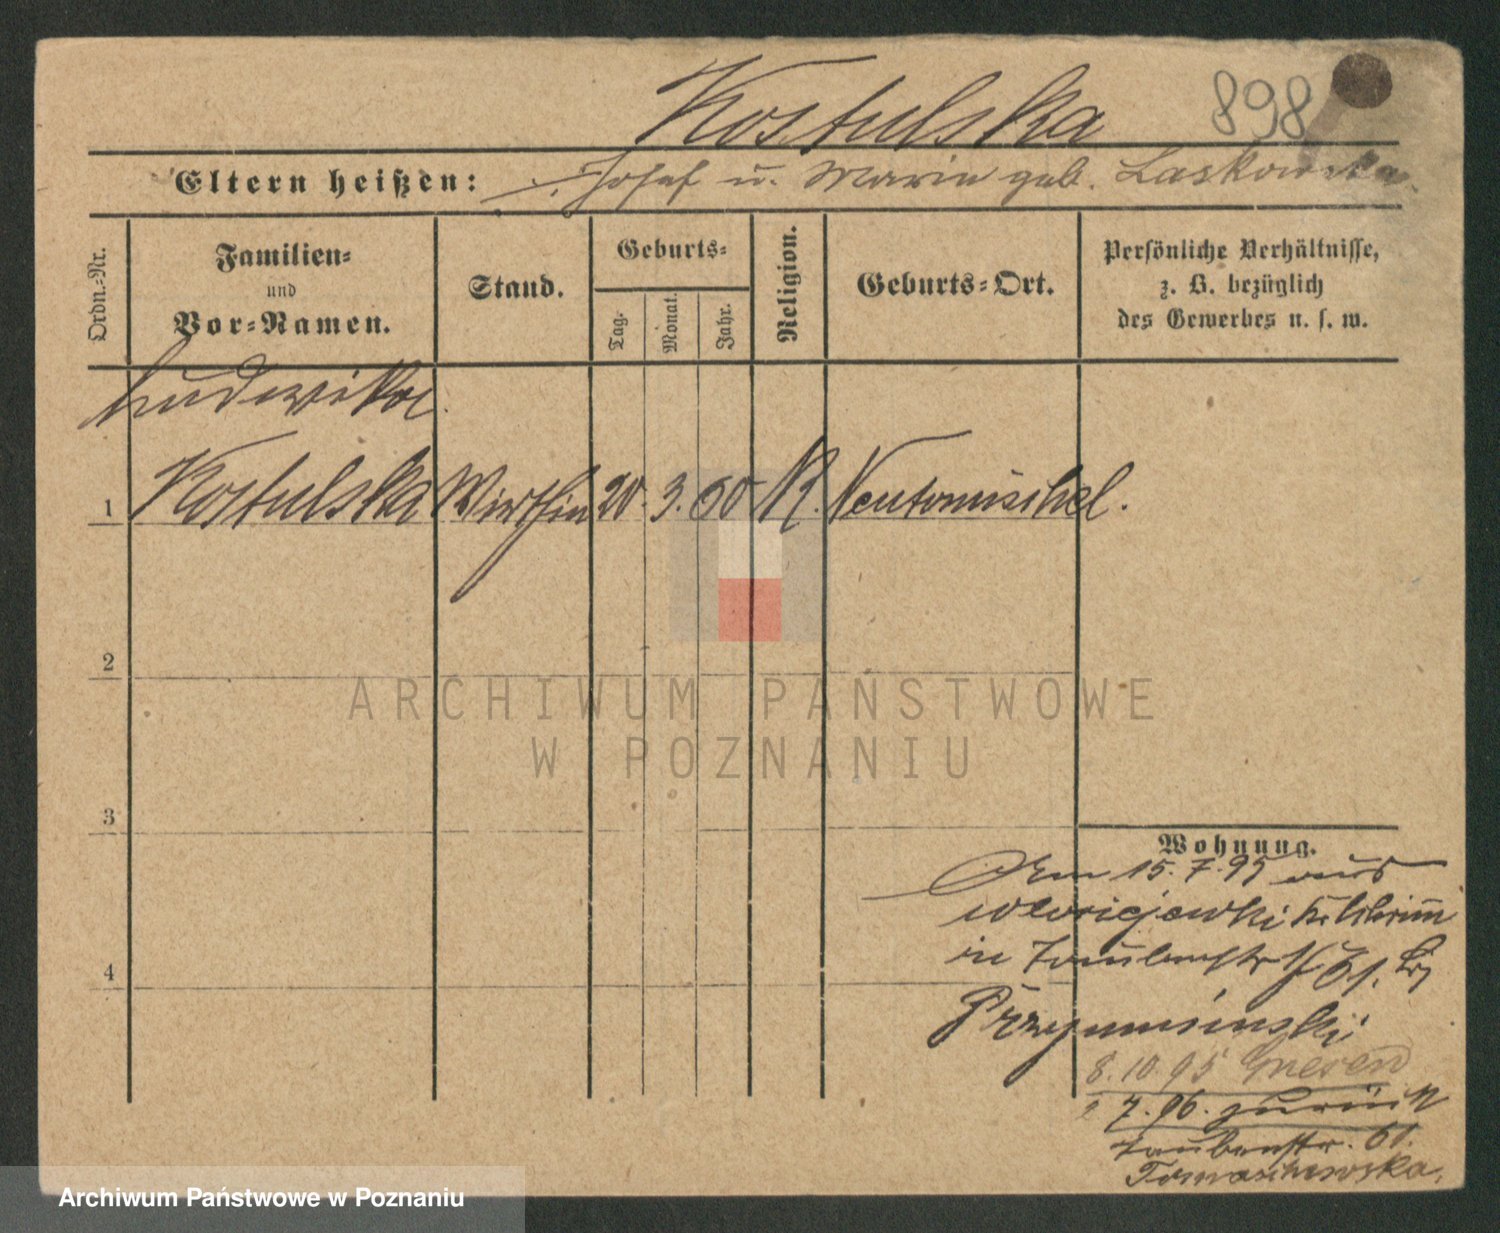 Kostulska 898
Eltern heißen: Josef u. Marie geb. Laskowska.
Ordn.-Nr.
Familien-
und
Vor-Namen.
Stand.
Geburts-
Tag.
Monat.
Jahr.
Religion.
Geburts-Ort.
Persönliche Verhältnisse,
z. B. bezüglich
des Gewerbes u. s. w.
Ludwika
1 Kostulska Wirthin 20. 3. 60 K. Neutomischel.
2
ARCHIWUM PAŃSTWOWE
W POZNANIU
3
Wohnung.
Am 15. 7. 95 aus
in Taubenstr
4
8. 10. 95 Gnesen
7. 96. zurück
Taubenstr. 61.
Tomaschewska.
Archiwum Państwowe w Poznaniu